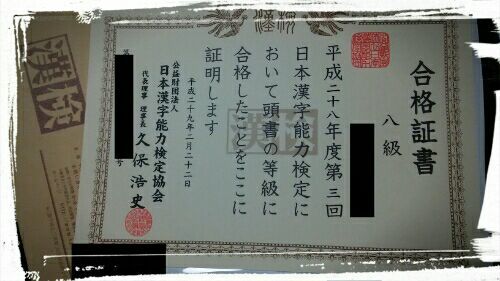 漢検
合格証書
八級
平成二十八年度第三回
日本漢字能力検定に
おいて頭書の等級に
合格したことをここに
証明します
平成二十九年二月二十二日
公益財団法人
日本漢字能力検定協会
代表理事 理事長 久保浩史
第
号
漢検
漢検